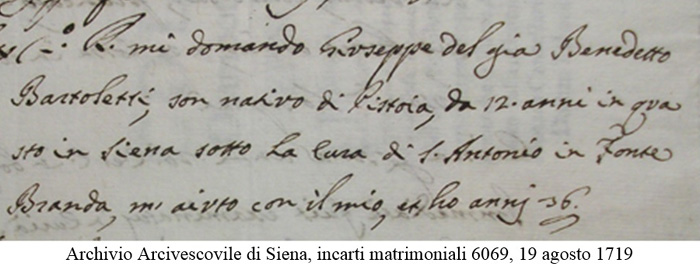 R. mi domando Giuseppe del gia Benedetto
Bartoletti, son nativo di Pistoia, da 12. anni in qua
sto in Siena sotto la Cura di S. Antonio in Fonte
Branda, m'aiuto con il mio, et ho annj 36.
Archivio Arcivescovile di Siena, incarti matrimoniali 6069, 19 agosto 1719